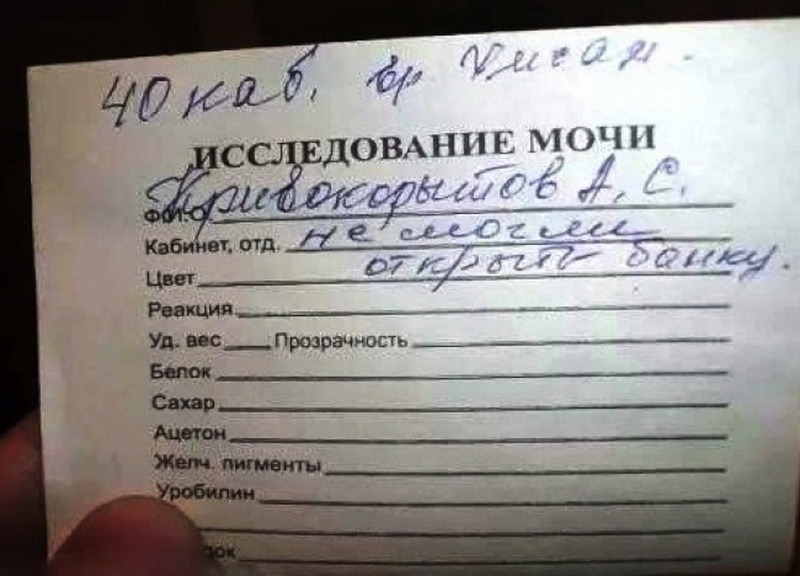 40 каб. вр
ИССЛЕДОВАНИЕ МОЧИ
Ф.И.О. Кривокорытов А. С.
Кабинет, отд. не могли
открыть банку.
Цвет
Реакция
Уд. вес Прозрачность
Белок
Сахар
Ацетон
Желч. пигменты
Уробилин